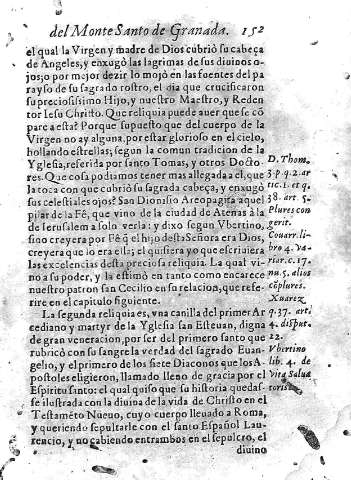 del Monte Santo de Granada. 152
el qual la Virgen y madre de Dios cubriò su cabeça
de Angeles, y enxugò las lagrimas de sus diuinos o-
jos; o por mejor dezir lo mojò en las fuentes del pa
rayso de su sagrado rostro, el dia que crucificaron
su preciosissimo Hijo, y nuestro Maestro, y Reden
tor Iesu Christo. Que reliquia puede auer que se cõ
pare a esta? Porque supuesto que del cuerpo de la
Virgen no ay alguna, por estar glorioso en el cielo,
hollando estrellas, segun la comun tradicion de la
Yglesia, referida por santo Tomas, y otros Docto-
res. Que cosa podiamos tener mas allegada a el, que
la toca con que cubriò su sagrada cabeça, y enxugò
sus celestiales ojos? San Dionisio Areopagita aquel
pilar de la Fè, que vino de la ciudad de Atenas à la
de Ierusalem a solo verla: y dixo segun Vbertino,
sino creyera por Fè q̃ el hijo desta Señora era Dios,
creyera que lo era ella; el quisiera yo que escriuiera
las excelencias desta preciosa reliquia. La qual vi-
no a su poder, y la estimò en tanto como encarece
nuestro patron san Cecilio en su relacion, que refe-
rire en el capitulo siguiente.
La segunda reliquia es, vna canilla del primer Ar
cediano y martyr de la Yglesia san Esteuan, digna
de gran veneracion, por ser del primero santo que
rubricò con su sangre la verdad del sagrado Euan-
gelio, y el primero de los siete Diaconos que los A-
postoles eligieron, llamado lleno de gracia por el
Espiritu santo: el qual quiso que su historia quedas-
se ilustrada con la diuina de la vida de Christo en el
Testamẽto Nueuo, cuyo cuerpo lleuado a Roma,
y queriendo sepultarle con el santo Español Lau-
rencio, y no cabiendo entrambos en el sepulcro, el
diuino
D. Thom.
3. p. q. 2. ar
tic. 1. et q.
38. art. 5.
Plures con
gerit.
Couarr. li-
bro 4. va-
riar. c. 17.
nu. 5. alios
cõplures.
Xuarez
q. 37. arti
4. disput.
22.
Vbertino
lib. 4. de
Vita Salua
toris.